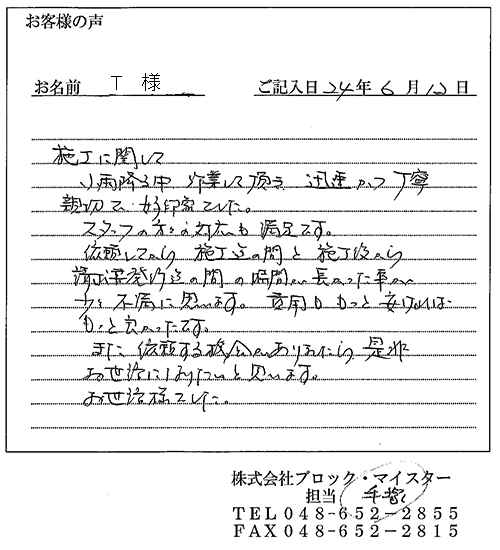 お客様の声
お名前 T 様 ご記入日 24年 6月12日
施工に関して
小雨降る中 作業して頂き 迅速かつ丁寧
親切で 好印象でした。
スタッフの方々の対応も 満足です。
依頼してから 施工迄の間と 施工後から
請求書発行迄の間の時間が長かった事が
少々不満に思います。 費用も もっと 安ければ
もっと良かったです。
また 依頼する機会がありましたら 是非
お世話になりたいと思います。
お世話様でした。
株式会社ブロック・マイスター
担当 手塚
TEL048-652-2855
FAX048-652-2815